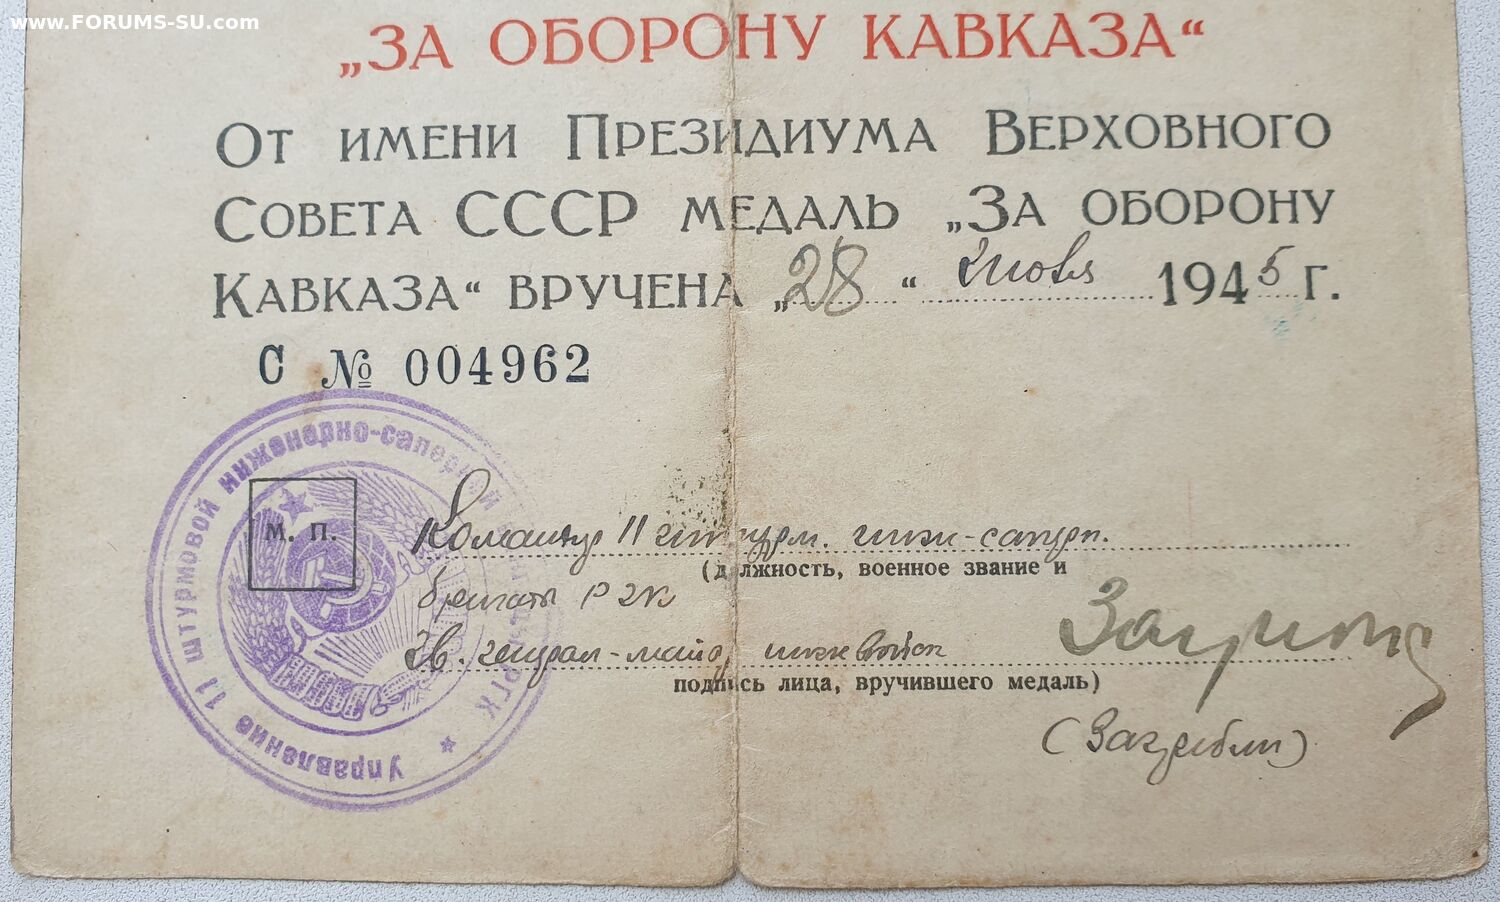 www.FORUMS-SU.com
„ЗА ОБОРОНУ КАВКАЗА“
От имени Президиума Верховного
Совета СССР медаль „За оборону
Кавказа“ вручена „28“ июля 1945 г.
С № 004962
Управление 11 штурмовой инженерно-саперной бригады РГК
М. П.
Командир 11 штурм. инж-сапёрн.
(должность, военное звание и
бригады РГК
Гв. генерал-майор инж войск
подпись лица, вручившего медаль)